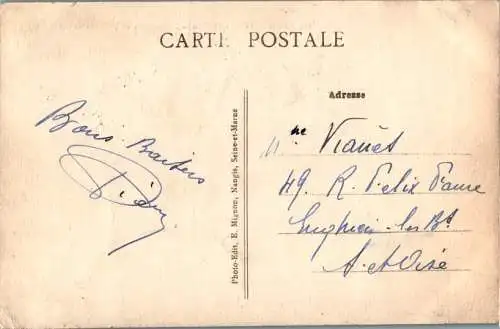 CARTE POSTALE
Bons Baisers
Photo-Edit. E. Mignon, Nangis, Seine-et-Marne
Adresse
Mme Vianès
49. R. Felix Faure
Enghien-les-Bs
S. et Oise